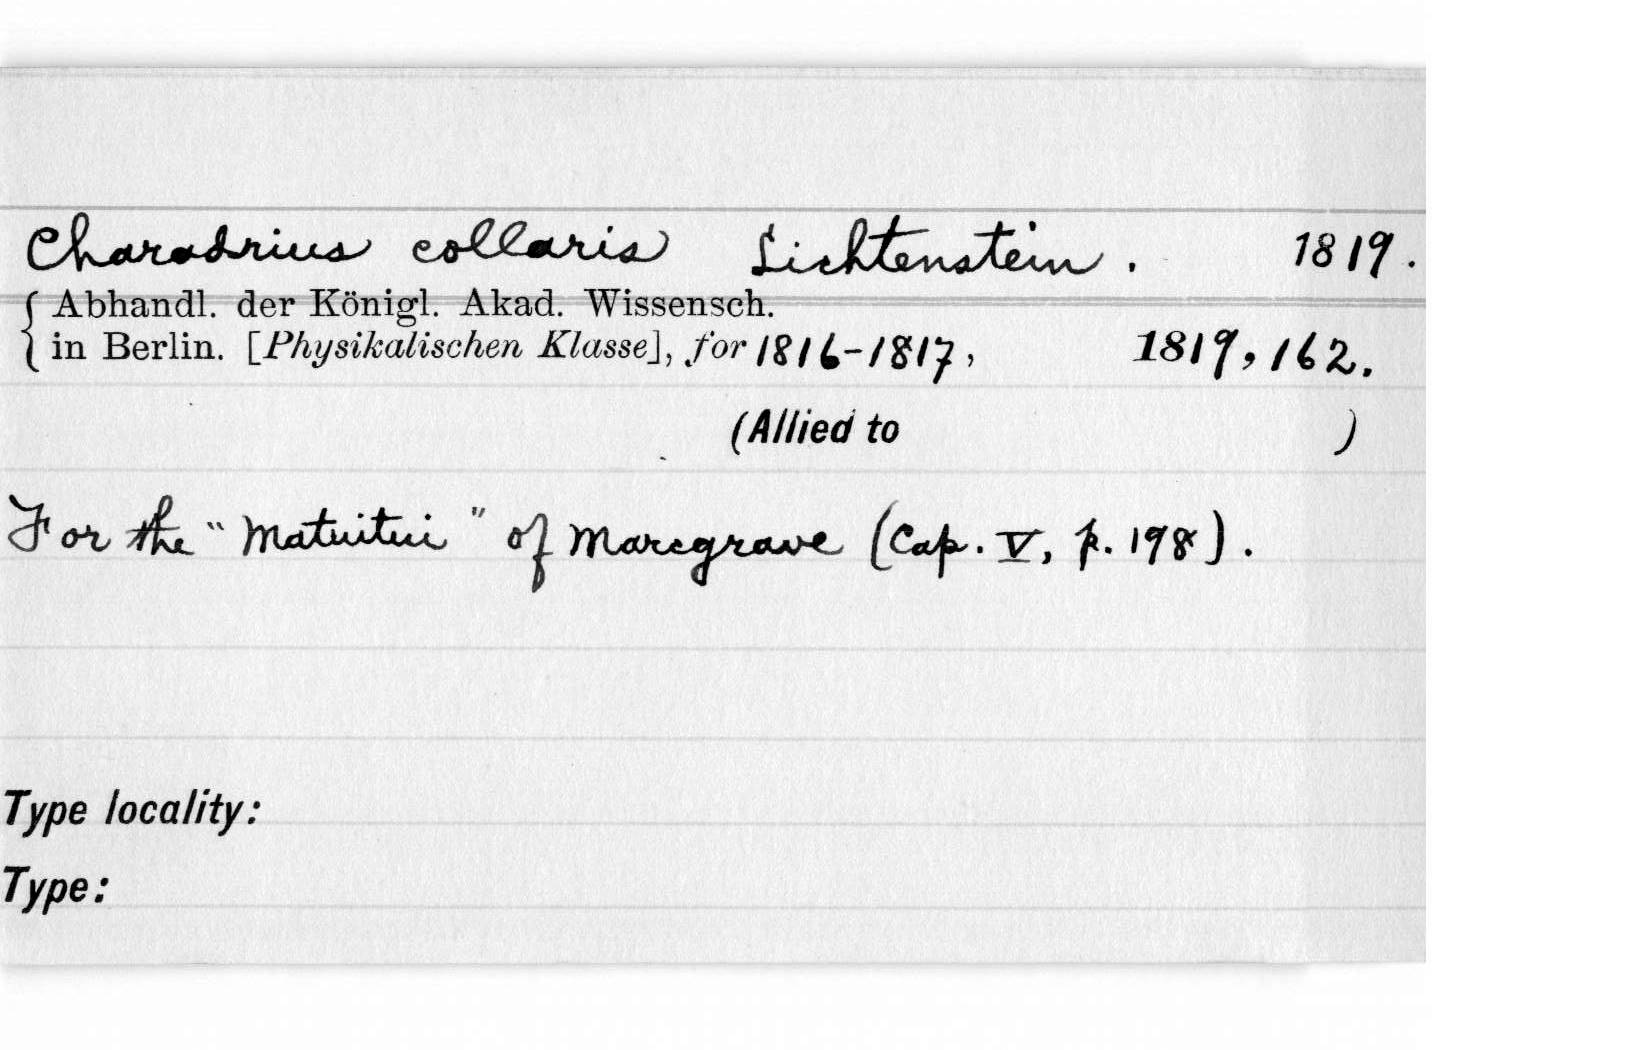 Charadrius collaris Lichtenstein. 1819.
{ Abhandl. der Königl. Akad. Wissensch.
in Berlin. [Physikalischen Klasse], for 1816-1817, 1819, 162.
(Allied to )
For the "Matuitui" of Marcgrave (Cap. V, p. 198).
Type locality:
Type: